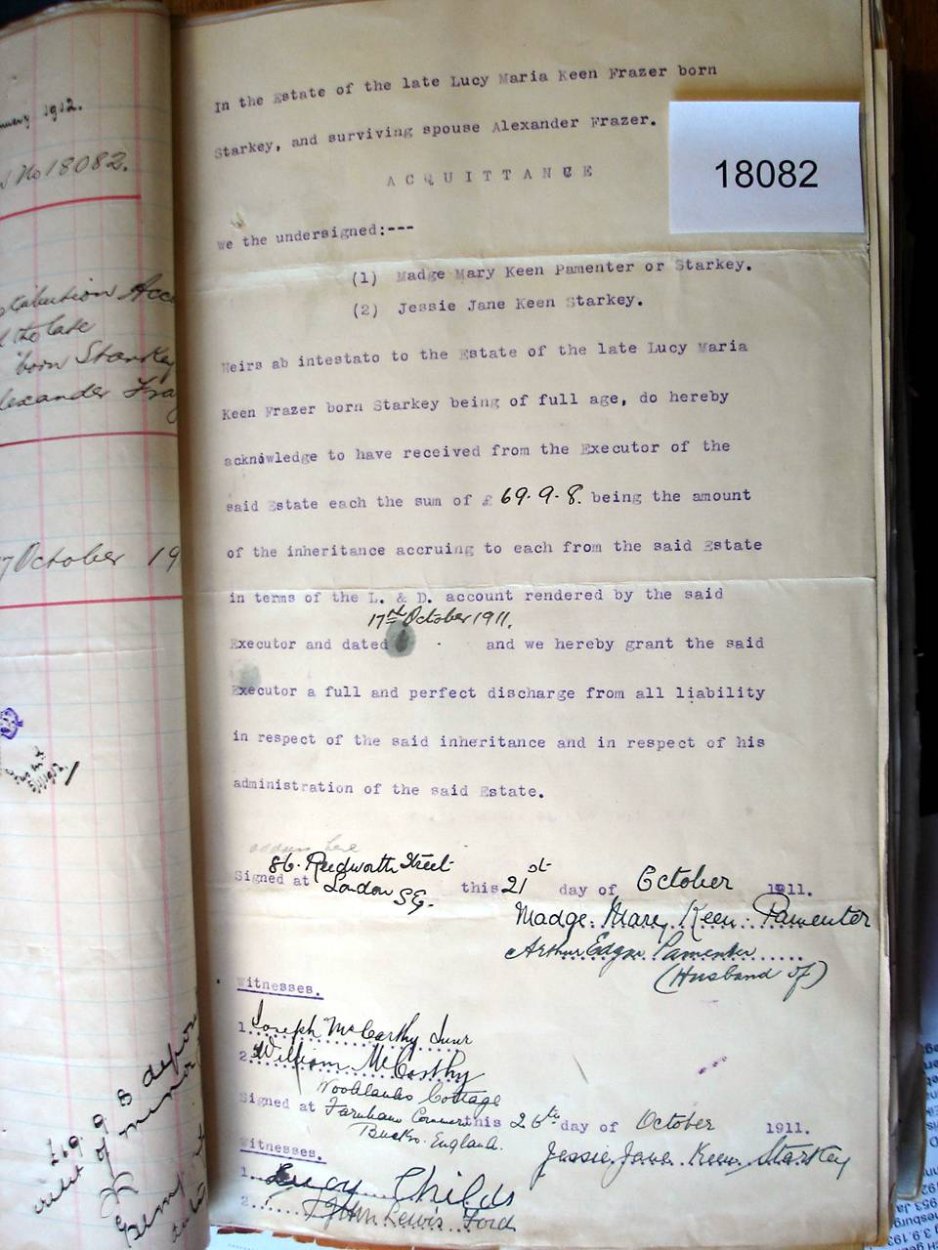 1912.
No 18082.
the late
born Starkey
October 19
£69. 9. 8
of minor
In the Estate of the late Lucy Maria Keen Frazer born
Starkey, and surviving spouse Alexander Frazer.
18082
ACQUITTANCE
We the undersigned:---
(1) Madge Mary Keen Pamenter or Starkey.
(2) Jessie Jane Keen Starkey.
Heirs ab intestato to the Estate of the late Lucy Maria
Keen Frazer born Starkey being of full age, do hereby
acknowledge to have received from the Executor of the
said Estate each the sum of £ 69.9.8. being the amount
of the inheritance accruing to each from the said Estate
in terms of the L. & D. account rendered by the said
17th October 1911.
Executor and dated and we hereby grant the said
Executor a full and perfect discharge from all liability
in respect of the said inheritance and in respect of his
administration of the said Estate.
address here
86. Street
Signed at London S.E. this 21st day of October 1911.
Madge Mary Keen Pamenter
Arthur Edgar Pamenter
(Husband of)
Witnesses.
1. Joseph McCarthy Junr
2. William McCarthy
Cottage
Signed at Farnham Common this 26th day of October 1911.
Bucks. England.
Jessie Jane Keen Starkey
Witnesses.
1. Lucy Childs
2. John Lewis Ford